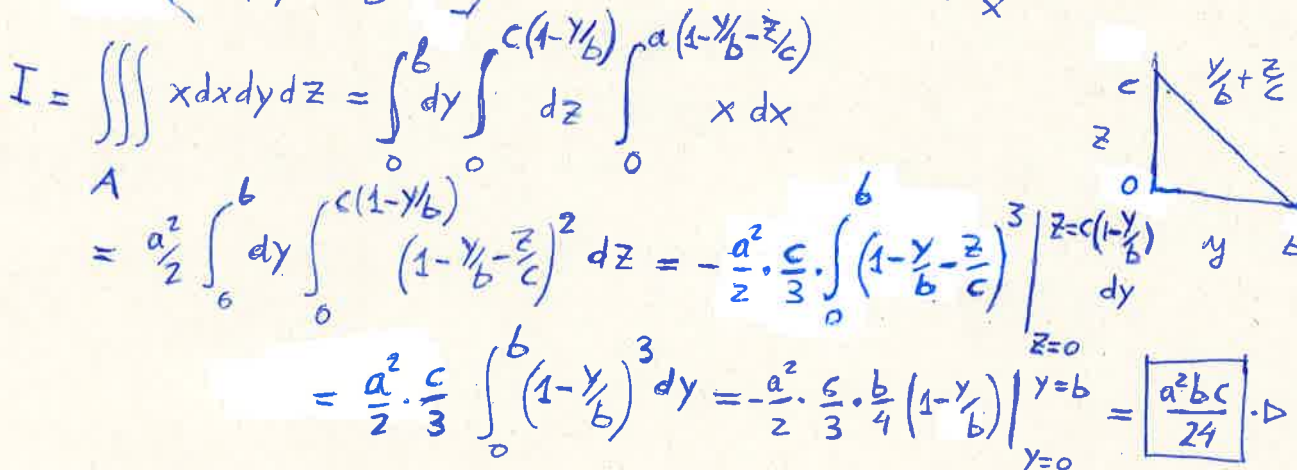 x
I = ∭_A x dx dy dz = ∫_0^b dy ∫_0^{c(1-y/b)} dz ∫_0^{a(1-y/b-z/c)} x dx
c y/b + z/c
z
0
y b
= a²/2 ∫_0^b dy ∫_0^{c(1-y/b)} (1-y/b-z/c)² dz = -a²/2 · c/3 · ∫_0^b (1-y/b-z/c)³ |_{z=0}^{z=c(1-y/b)} dy
= a²/2 · c/3 ∫_0^b (1-y/b)³ dy = -a²/2 · c/3 · b/4 (1-y/b) |_{y=0}^{y=b} = a²bc/24 · ▷